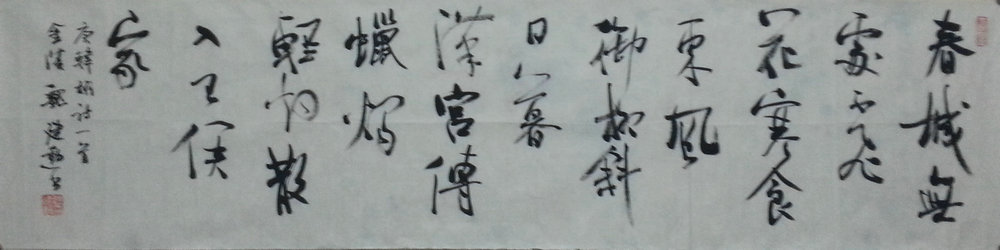 春城無
處不飛
花寒食
東風
御柳斜
日暮
漢宮傳
蠟燭
輕烟散
入五侯
家
唐韓翃詩一首
金陵魏建